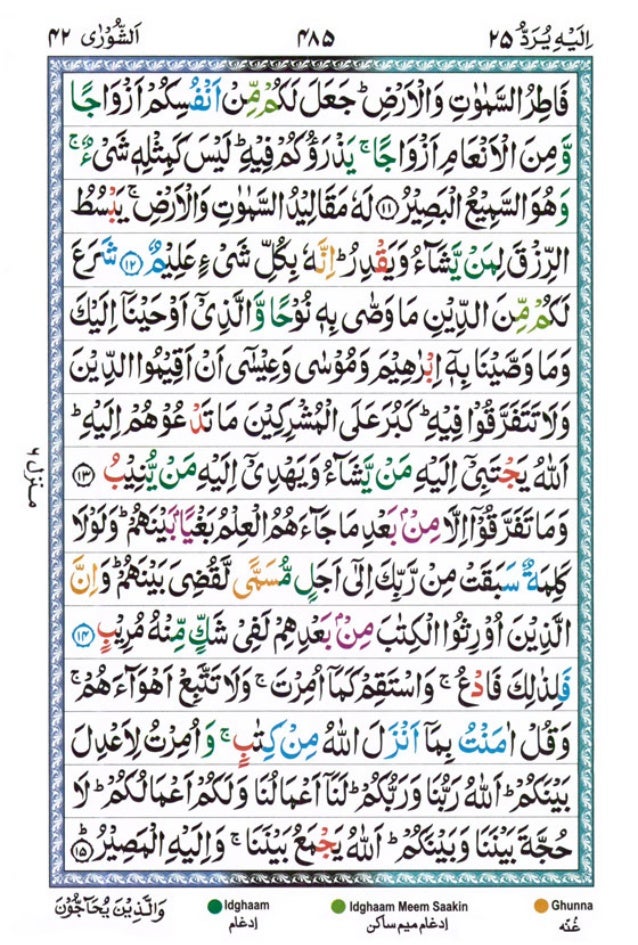 اِلَیْهِ یُرَدُّ ۲۵ ۴۸۵ اَلشُّوْرٰی ۴۲
فَاطِرُ السَّمٰوٰتِ وَالْاَرْضِ ؕ جَعَلَ لَكُمْ مِّنْ اَنْفُسِكُمْ اَزْوَاجًا
وَّمِنَ الْاَنْعَامِ اَزْوَاجًا ۚ یَذْرَؤُكُمْ فِیْهِ ؕ لَیْسَ كَمِثْلِهٖ شَیْءٌ ۚ
وَهُوَ السَّمِیْعُ الْبَصِیْرُ ﴿۱۱﴾ لَهٗ مَقَالِیْدُ السَّمٰوٰتِ وَالْاَرْضِ ۚ یَبْسُطُ
الرِّزْقَ لِمَنْ یَّشَآءُ وَیَقْدِرُ ؕ اِنَّهٗ بِكُلِّ شَیْءٍ عَلِیْمٌ ﴿۱۲﴾ شَرَعَ
لَكُمْ مِّنَ الدِّیْنِ مَا وَصّٰی بِهٖ نُوْحًا وَّالَّذِیْۤ اَوْحَیْنَاۤ اِلَیْكَ
وَمَا وَصَّیْنَا بِهٖۤ اِبْرٰهِیْمَ وَمُوْسٰی وَعِیْسٰۤی اَنْ اَقِیْمُوا الدِّیْنَ
وَلَا تَتَفَرَّقُوْا فِیْهِ ؕ كَبُرَ عَلَی الْمُشْرِكِیْنَ مَا تَدْعُوْهُمْ اِلَیْهِ ؕ
اَللّٰهُ یَجْتَبِیْۤ اِلَیْهِ مَنْ یَّشَآءُ وَیَهْدِیْۤ اِلَیْهِ مَنْ یُّنِیْبُ ﴿۱۳﴾
وَمَا تَفَرَّقُوْۤا اِلَّا مِنْۢ بَعْدِ مَا جَآءَهُمُ الْعِلْمُ بَغْیًۢا بَیْنَهُمْ ؕ وَلَوْلَا
كَلِمَةٌ سَبَقَتْ مِنْ رَّبِّكَ اِلٰۤی اَجَلٍ مُّسَمًّی لَّقُضِیَ بَیْنَهُمْ ؕ وَاِنَّ
الَّذِیْنَ اُوْرِثُوا الْكِتٰبَ مِنْۢ بَعْدِهِمْ لَفِیْ شَكٍّ مِّنْهُ مُرِیْبٍ ﴿۱۴﴾
فَلِذٰلِكَ فَادْعُ ۚ وَاسْتَقِمْ كَمَاۤ اُمِرْتَ ۚ وَلَا تَتَّبِعْ اَهْوَآءَهُمْ ۚ
وَقُلْ اٰمَنْتُ بِمَاۤ اَنْزَلَ اللّٰهُ مِنْ كِتٰبٍ ۚ وَاُمِرْتُ لِاَعْدِلَ
بَیْنَكُمْ ؕ اَللّٰهُ رَبُّنَا وَرَبُّكُمْ ؕ لَنَاۤ اَعْمَالُنَا وَلَكُمْ اَعْمَالُكُمْ ؕ لَا
حُجَّةَ بَیْنَنَا وَبَیْنَكُمْ ؕ اَللّٰهُ یَجْمَعُ بَیْنَنَا ۚ وَاِلَیْهِ الْمَصِیْرُ ﴿۱۵﴾ؕ
منزل ۶
وَالَّذِیْنَ یُحَآجُّوْنَ
Idghaam Idghaam Meem Saakin Ghunna
ادغام ادغام میم ساکن غُنّه